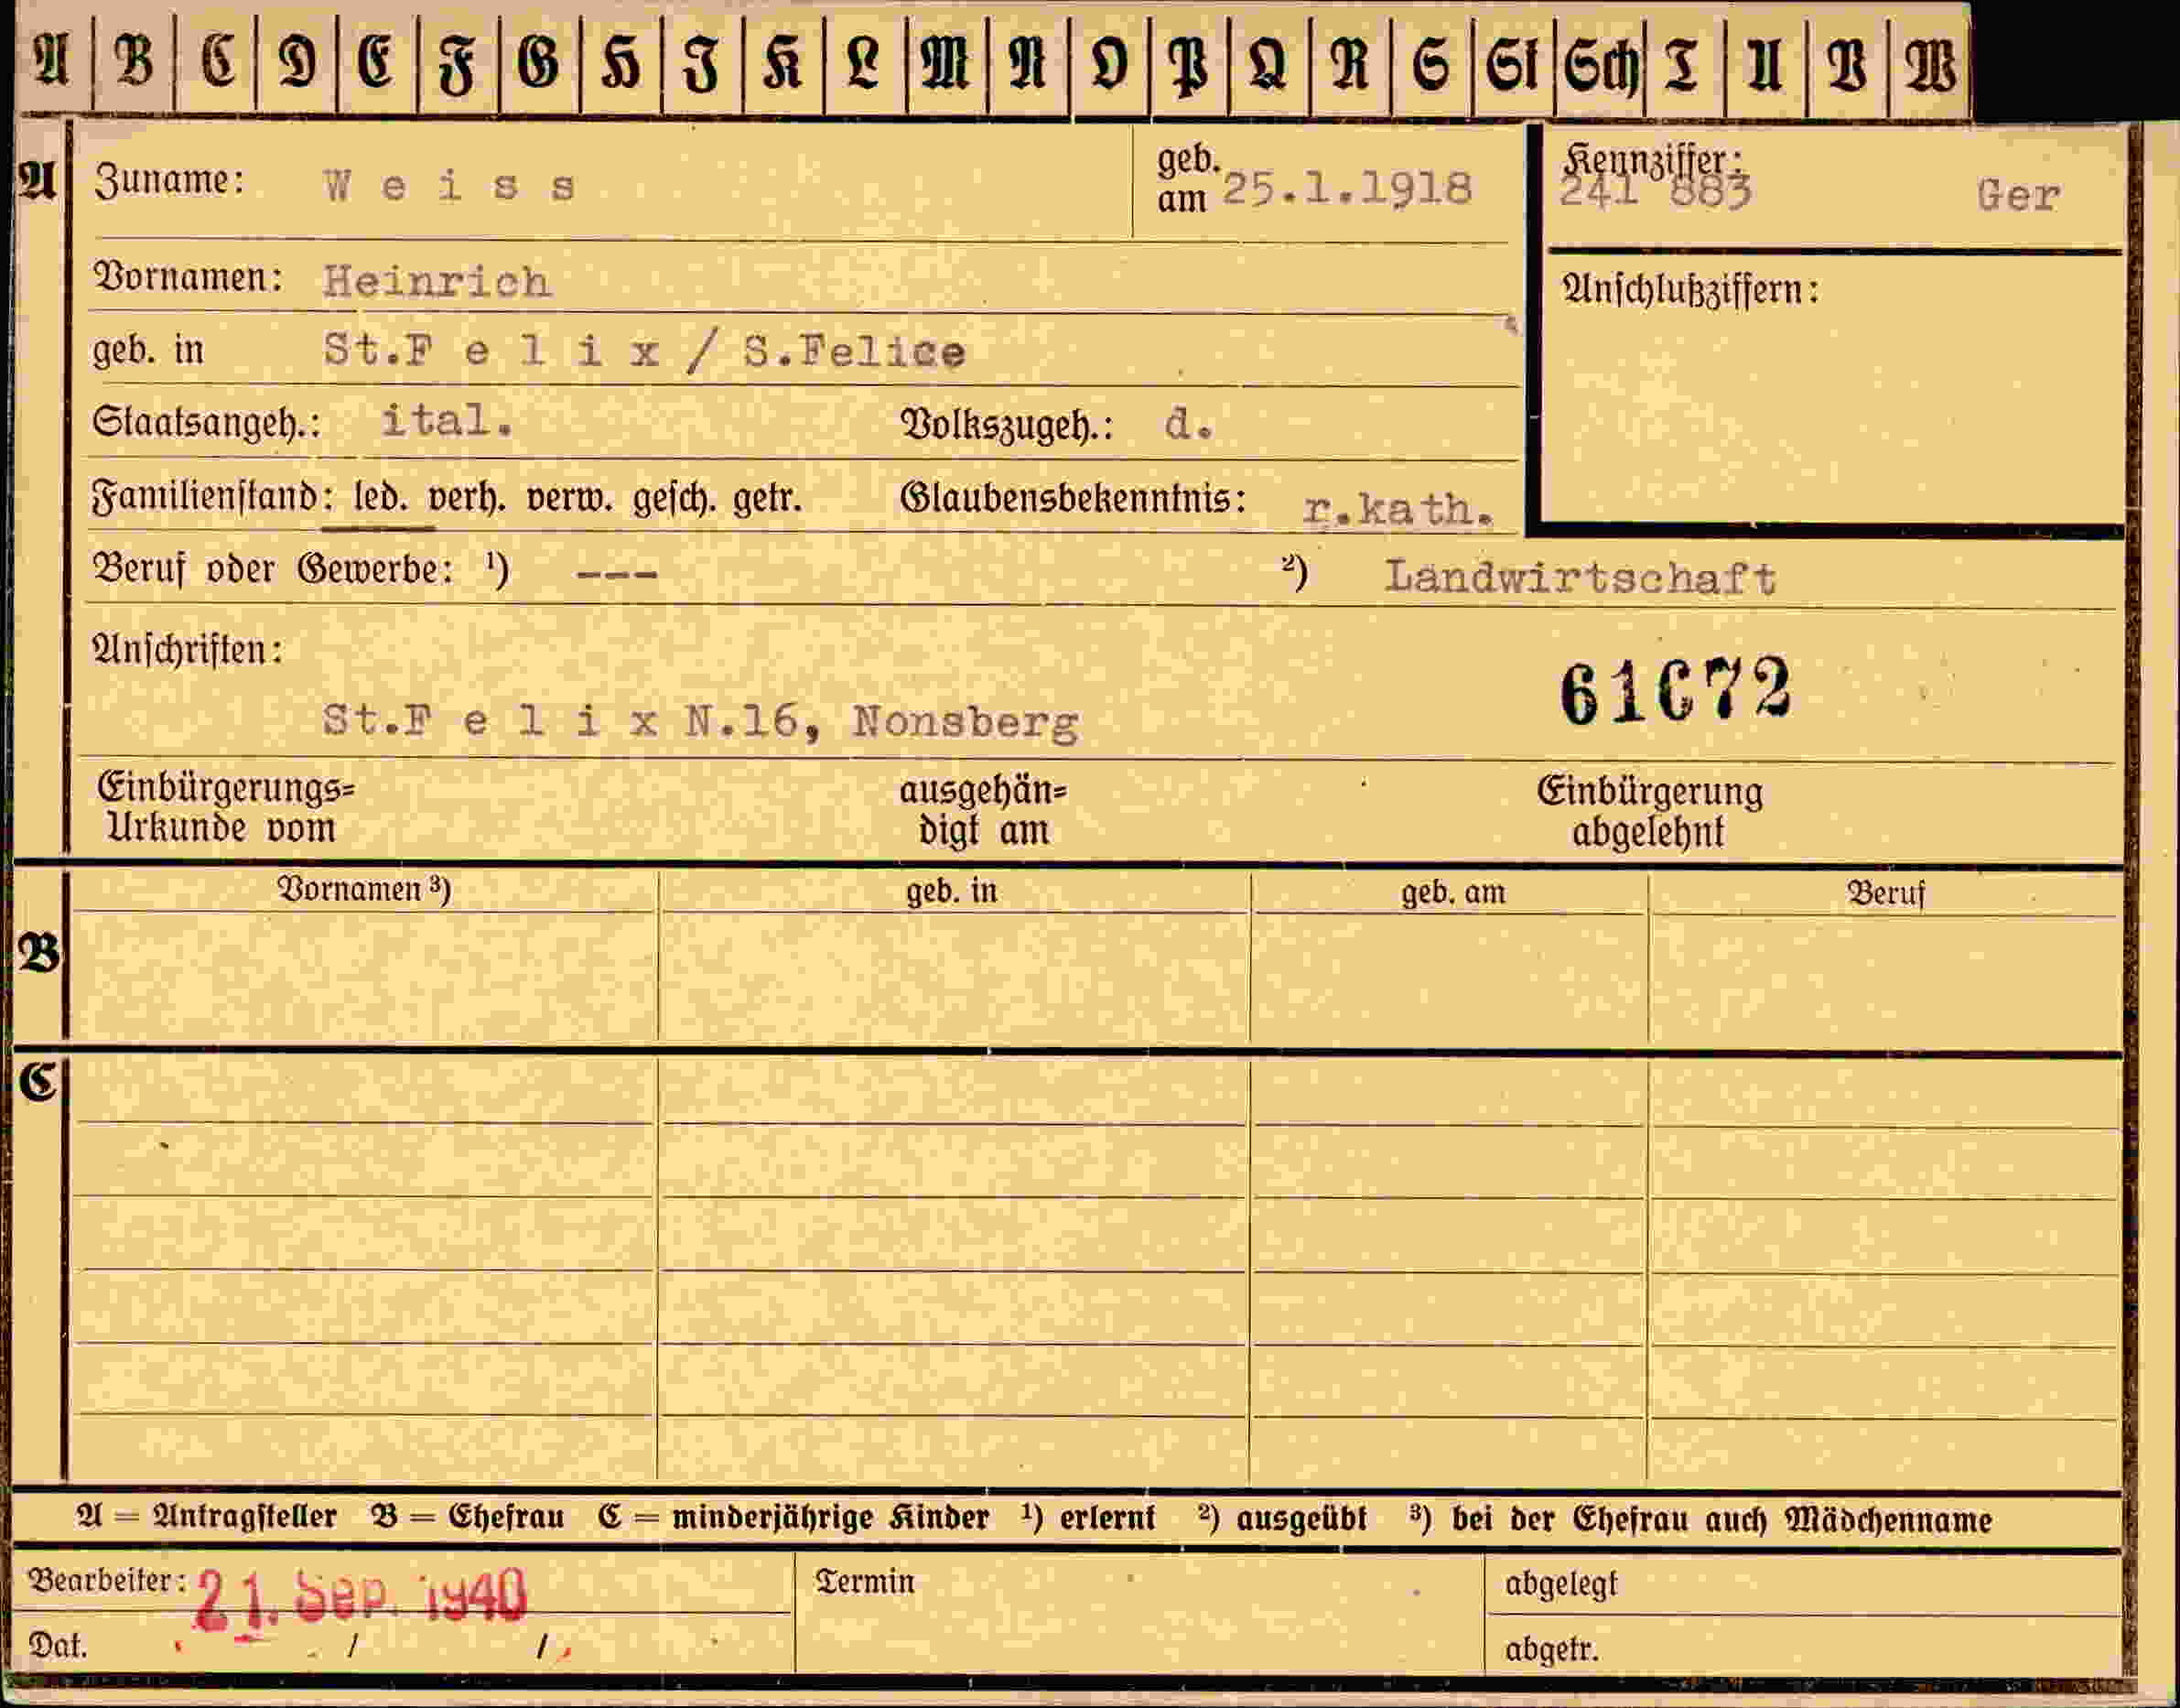 A B C D E F G H I K L M N O P Q R S St Sch T U V W
A Zuname: W e i s s geb. am 25.1.1918 Kennziffer: 241 883 Ger
Vornamen: Heinrich
Anschlußziffern:
geb. in St.F e l i x / S.Felice
Staatsangeh.: ital. Volkszugeh.: d.
Familienstand: led. verh. verw. gesch. getr. Glaubensbekenntnis: r.kath.
Beruf oder Gewerbe: ¹) --- ²) Landwirtschaft
Anschriften:
61072
St.F e l i x N.16, Nonsberg
Einbürgerungs= ausgehän= Einbürgerung
Urkunde vom digt am abgelehnt
Vornamen ³) geb. in geb. am Beruf
B
C
A = Antragsteller B = Ehefrau C = minderjährige Kinder ¹) erlernt ²) ausgeübt ³) bei der Ehefrau auch Mädchenname
Bearbeiter: 21. Sep. 1940 Termin abgelegt
Dat. / / abgetr.